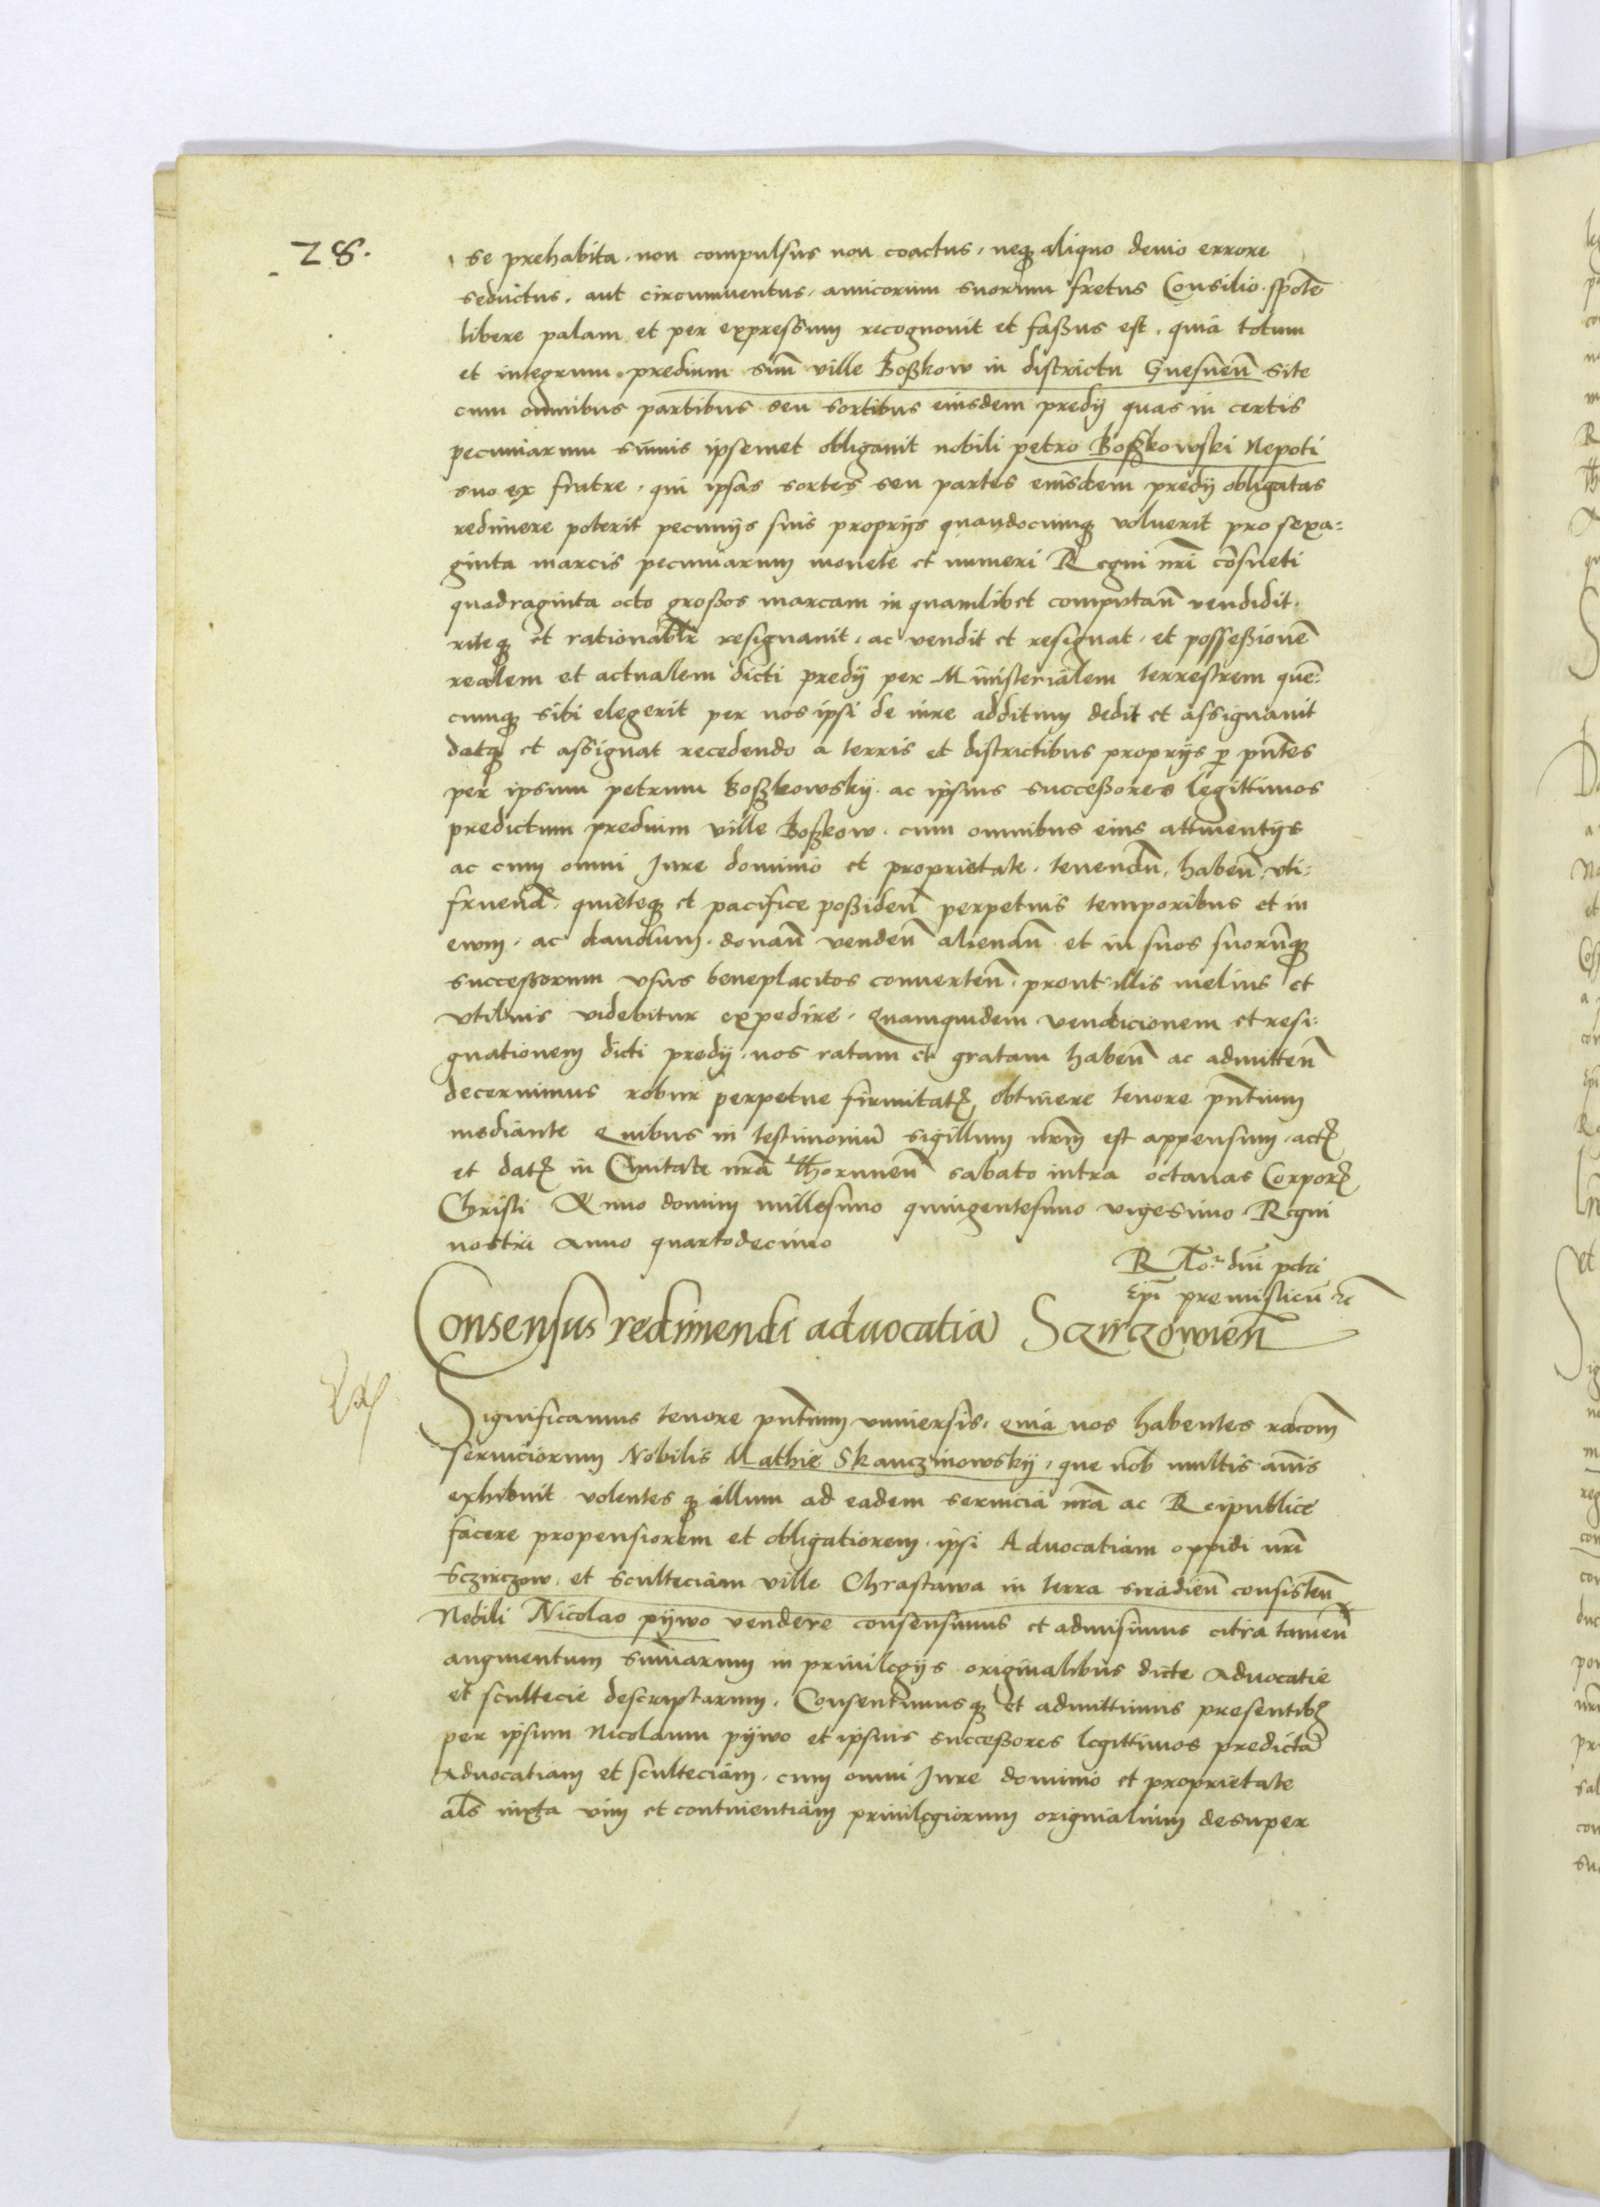 28.
se prehabita. non compulsus non coactus. neq3 aliquo deuio errore
seductus. aut circumuentus. amicorum suorum fretus Consilio. spōte
libere palam et per expressum recognouit et faßus est. quia totum
et integrum predium suū ville Boßkow in districtu Gnesneñ site
cum omnibus partibus seu sortibus eiusdem predij quas in certis
pecuniarum sūmis ipsemet obligauit nobili petro Boßkowski Nepoti
suo ex fratre. qui ipsas sortes seu partes eiusdem predij obligatas
redimere poterit pecunijs suis proprijs quandocumq3 voluerit pro sexa=
ginta marcis pecuniarum monete et numeri Regni nr̄i cōsueti
quadraginta octo großos marcam in quamlibet computañ vendidit.
riteq3 et rationabłr resignauit. ac vendit et resignat. et possessionē
realem et actualem dicti predij per Ministerialem terrestrem quē=
cumq3 sibi elegerit per nos ipsi de iure additum dedit et assignauit
datq3 et assignat recedendo a terris et districtibus proprijs p pñtes
per ipsum petrum Boßkowskij. ac ipsius succeßores legittimos
predictum predium ville Boßkow. cum omnibus eius attinentijs
ac cum omni Jure dominio et proprietate. tenendū. habeñ vti=
fruend̄. quieteq3 et pacifice poßideñ perpetuis temporibus et in
ewm. ac dandum. donañ vendeñ alienañ et in suos suorūq3
succeßorum vsus beneplacitos conuerteñ. prout illis melius et
vtilius videbitur expedire. Quamquidem vendicionem et resi=
gnationem dicti predij nos ratam et gratam habeñ ac admitteñ
decernimus robur perpetue firmitat3 obtinere tenore pñtium
mediante Quibus in testimoniū sigillum nr̄m est appensum. act3
et dat3 in Ciuitate nr̄a Thoruneñ sabato intra octauas Corpor3
Christi Anno domini millesimo quingentesimo vigesimo Regni
nostri Anno quartodecimo
R᷑lo: dn̄i petri
Ep̄i premislieñ etc̄
Consensus redimendi aduocatiā Sczirczowieñ
Significamus tenore pñtium vniuersis. Quia nos habentes racōm
seruiciorum Nobilis Mathie Skanczinowskij. que nob̄ multis annis
exhibuit volentesq3 illum ad eadem seruicia nr̄a ac Reipublice
facere propensiorem et obligatiorem. ipsi Aduocatiam oppidi nr̄i
Sczirczow. et scultetiam ville Chrastawa in terra siradieñ consisteñ
Nobili Nicolao pijwo vendere consensimus et admisimus citra tameñ
augmentum sūmarum in priuilegijs originalibus dicte Aduocatie
et scultecie descriptarum. Consentimusq3 et admittimus presentib3
per ipsum Nicolaum pijwo et ipsius succeßores legittimos predictā
Aduocatiam et scultetiam. cum omni Jure dominio et proprietate
als iuxta vim et continentiam priuilegiorum originalium desuper